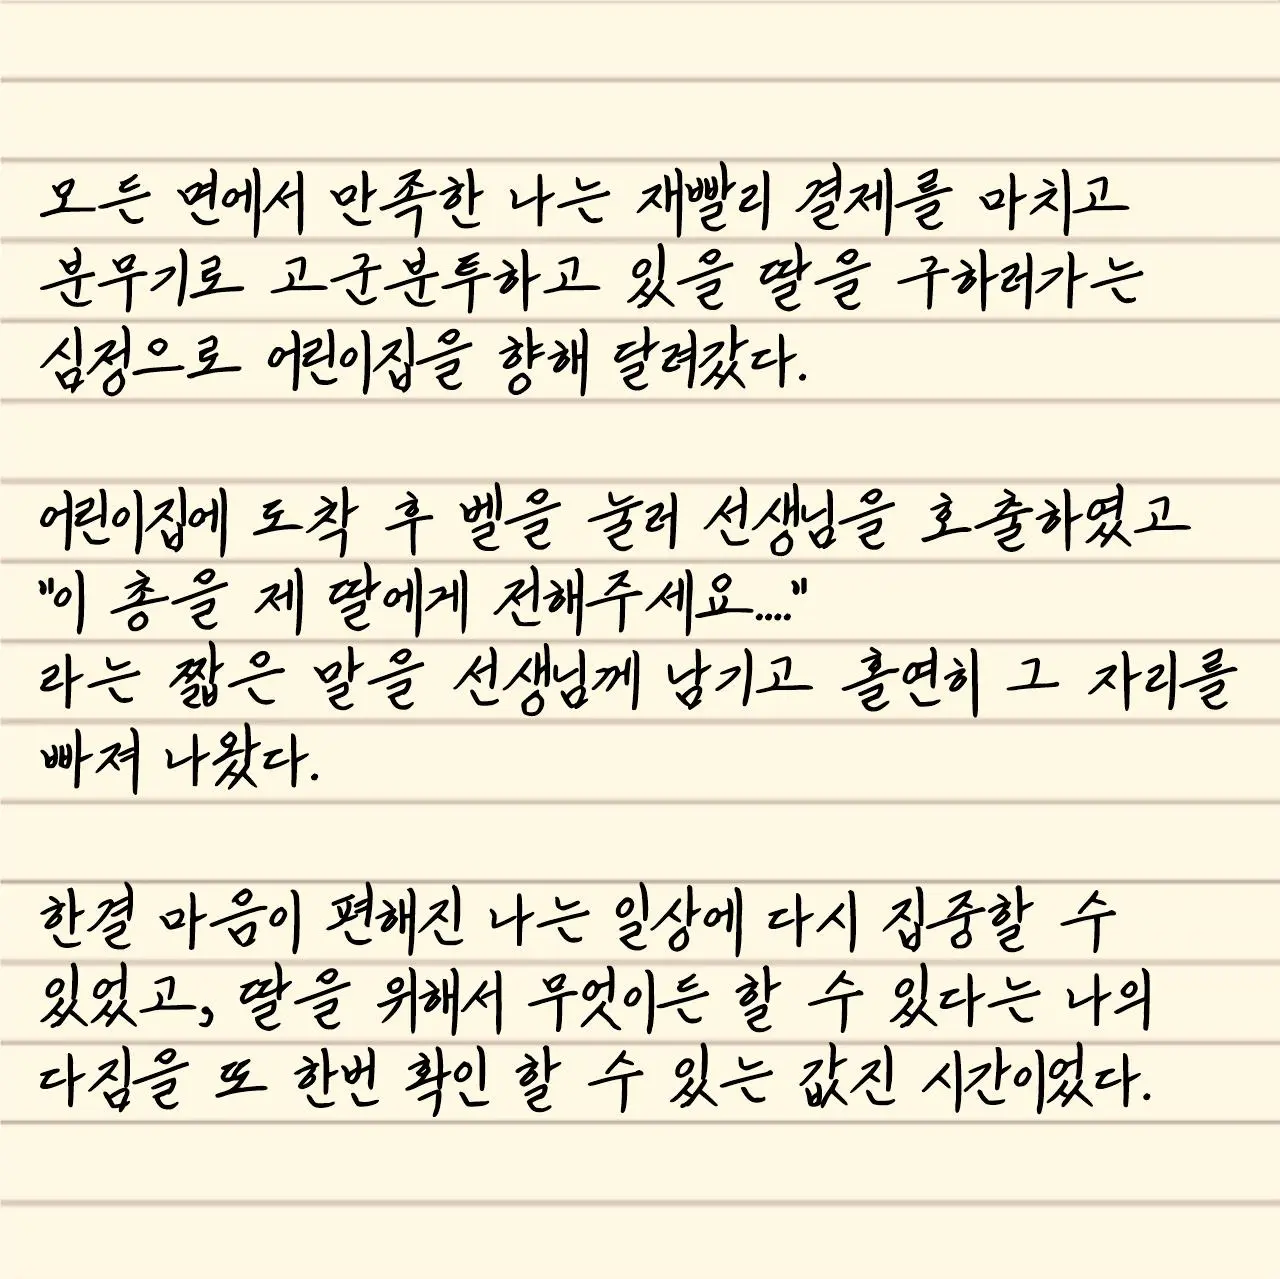 모든 면에서 만족한 나는 재빨리 결제를 마치고
분무기로 고군분투하고 있을 딸을 구하러가는
심정으로 어린이집을 향해 달려갔다.
어린이집에 도착 후 벨을 눌러 선생님을 호출하였고
"이 총을 제 딸에게 전해주세요...."
라는 짧은 말을 선생님께 남기고 홀연히 그 자리를
빠져 나왔다.
한결 마음이 편해진 나는 일상에 다시 집중할 수
있었고, 딸을 위해서 무엇이든 할 수 있다는 나의
다짐을 또 한번 확인 할 수 있는 값진 시간이었다.